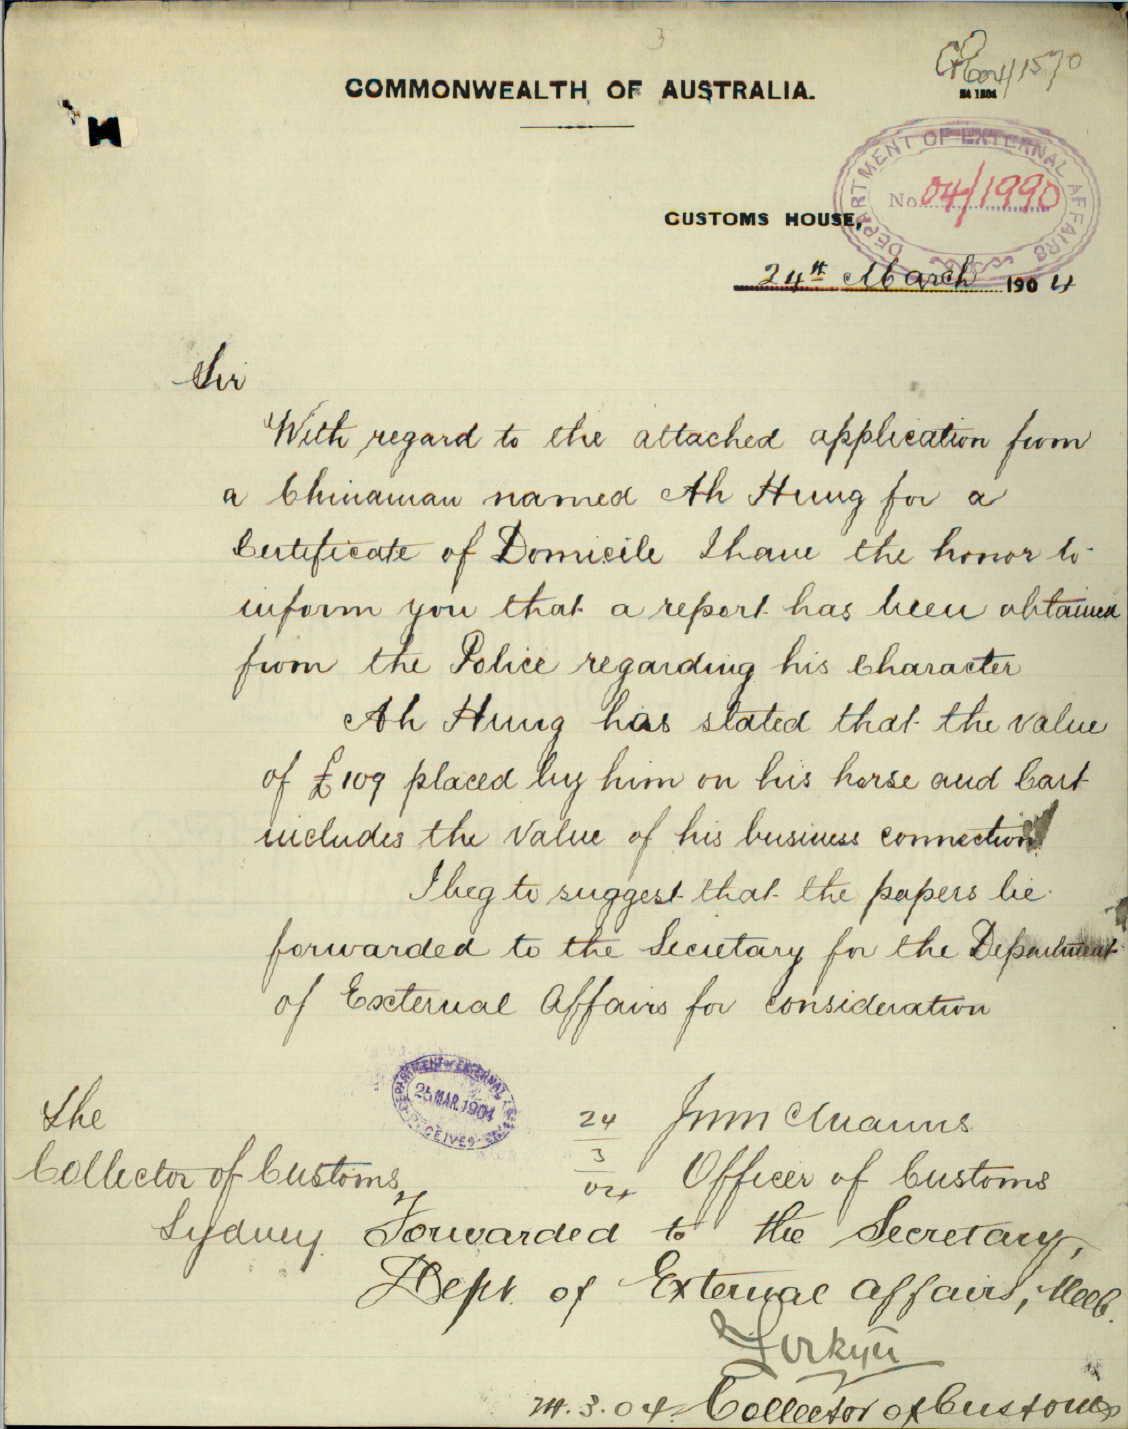 3
04/1570
COMMONWEALTH OF AUSTRALIA.
DEPARTMENT OF EXTERNAL AFFAIRS
No. 04/1990
CUSTOMS HOUSE,
24th March 1904
Sir
With regard to the attached application from
a Chinaman named Ah Hung for a
Certificate of Domicile I have the honor to
inform you that a report has been obtained
from the Police regarding his Character
Ah Hung has stated that the value
of £109 placed by him on his horse and Cart
includes the value of his business connection
I beg to suggest that the papers be
forwarded to the Secretary for the Department
of External Affairs for consideration
DEPARTMENT OF EXTERNAL
25 MAR. 1904
RECEIVED
24
3
04
Officer of Customs
The
Collector of Customs
Sydney
Forwarded to the Secretary,
Dept. of External Affairs, Melb.
3.04. Collector of Customs